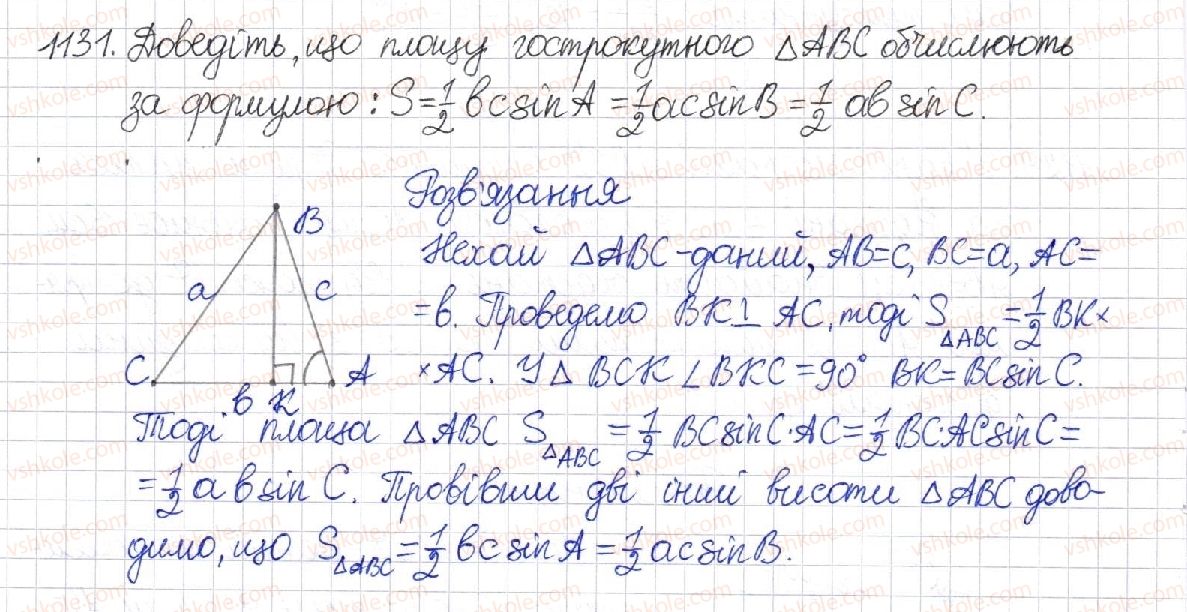 1131. Доведіть, що площу гострокутного △ABC обчислюють
за формулою: S=½ bc sin A = ½ ac sin B = ½ ab sin C.
Розв'язання
B
a
c
C
A
b
K
Нехай △ABC - даний, AB=c, BC=a, AC=
=b. Проведемо BK⊥ AC, тоді S△ABC = ½ BK×
×AC. У △ BCK ∠BKC = 90° BK = BC sin C.
Тоді площа △ABC S△ABC = ½ BC sin C · AC = ½ BC·AC sin C =
= ½ a b sin C. Провівши дві інші висоти △ABC дово-
димо, що S△ABC = ½ bc sin A = ½ ac sin B.
vshkole.com